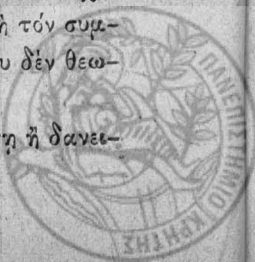 ὴ τόν συμ-
υ δέν θεω-
τη ἤ δανει-
ΠΑΝΕΠΙΣΤΗΜΙΟ ΚΡΗΤΗΣ